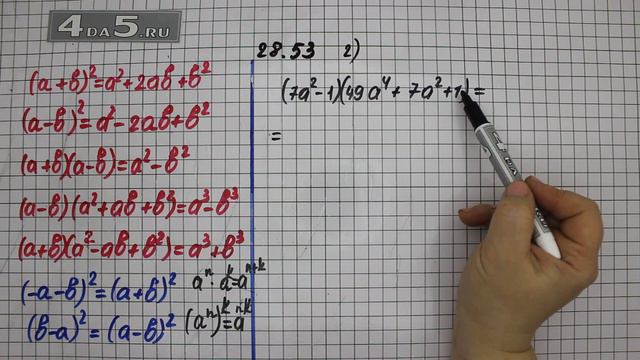 4DA5.RU
28.53 г)
(a+b)²=a²+2ab+b²
(a-b)²=a²-2ab+b²
(a+b)(a-b)=a²-b²
(a-b)(a²+ab+b²)=a³-b³
(a+b)(a²-ab+b²)=a³+b³
(-a-b)²=(a+b)²
(b-a)²=(a-b)²
aⁿ·aᵏ=aⁿ⁺ᵏ
(aⁿ)ᵏ=aⁿᵏ
(7a²-1)(49a⁴+7a²+1)=
=